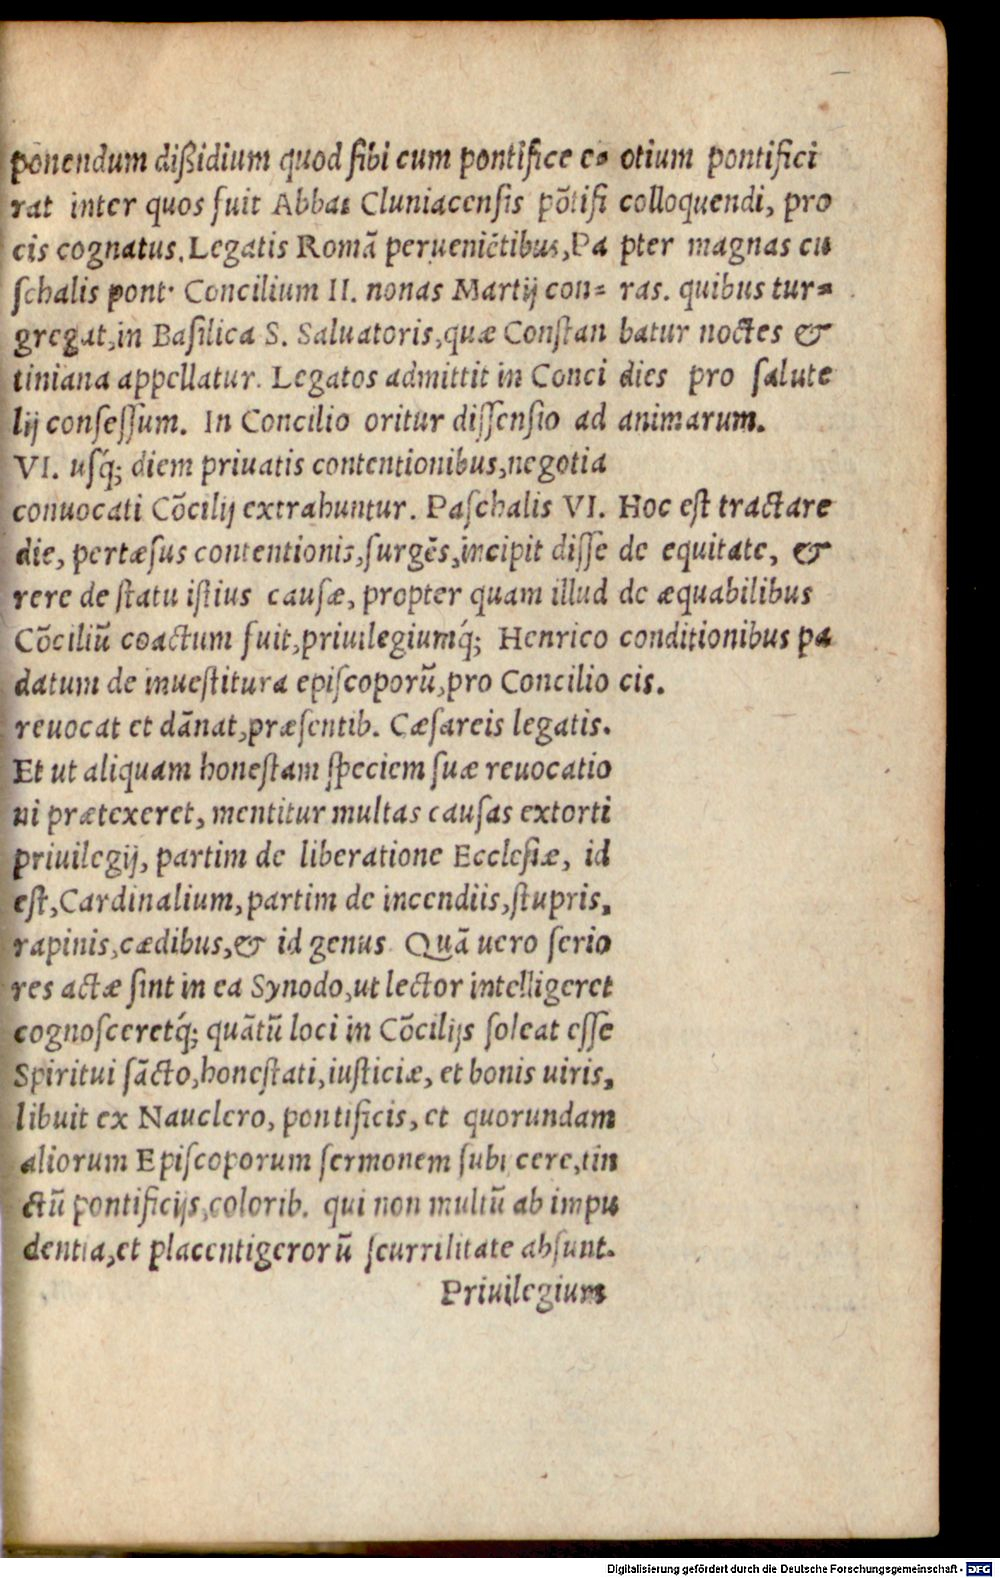 ponendum dißidium quod sibi cum pontifice e⸗
rat inter quos fuit Abbas Cluniacensis põtifi
cis cognatus. Legatis Romã perueniẽtibus, Pa
schalis pont. Concilium II. nonas Martij con⸗
gregat, in Basilica S. Saluatoris, quæ Constan
tiniana appellatur. Legatos admittit in Conci
lij consessum. In Concilio oritur dissensio ad
VI. usq́; diem priuatis contentionibus, negotia
conuocati Cõcilij extrahuntur. Paschalis VI.
die, pertæsus contentionis, surgẽs, incipit disse
rere de statu istius causæ, propter quam illud
Cõciliũ coactum fuit, priuilegiumq́; Henrico
datum de inuestitura episcoporũ, pro Concilio
reuocat et dãnat, præsentib. Cæsareis legatis.
Et ut aliquam honestam speciem suæ reuocatio
ni prætexeret, mentitur multas causas extorti
priuilegij, partim de liberatione Ecclesiæ, id
est, Cardinalium, partim de incendiis, stupris,
rapinis, cædibus, & id genus. Quã uero serio
res actæ sint in ea Synodo, ut lector intelligeret
cognosceretq́; quãtũ loci in Cõcilijs soleat esse
Spiritui sãcto, honestati, iusticiæ, et bonis uiris,
libuit ex Nauclero, pontificis, et quorundam
aliorum Episcoporum sermonem subijcere, tin
ctũ pontificijs, colorib. qui non multũ ab impu
dentia, et placentigerorũ scurrilitate absunt.
Priuilegium
otium pontifici
colloquendi, pro
pter magnas cu
ras. quibus tur⸗
batur noctes &
dies pro salute
animarum.
Hoc est tractare
de equitate, &
de æquabilibus
conditionibus pa
cis.
Digitalisierung gefördert durch die Deutsche Forschungsgemeinschaft - DFG